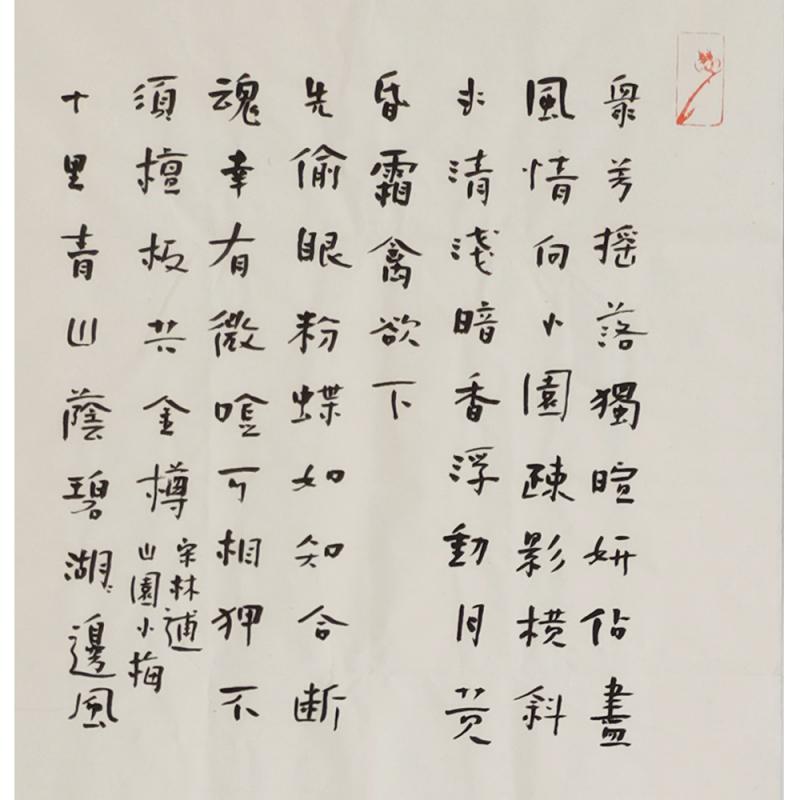 眾芳搖落獨暄妍佔盡
風情向小園疎影横斜
水清淺暗香浮動月黃
昏霜禽欲下
先偷眼粉蝶如知合断
魂幸有微唫可相狎不
須檀板共金樽
宋林逋
山園小梅
十里青山蔭碧湖〻邊風